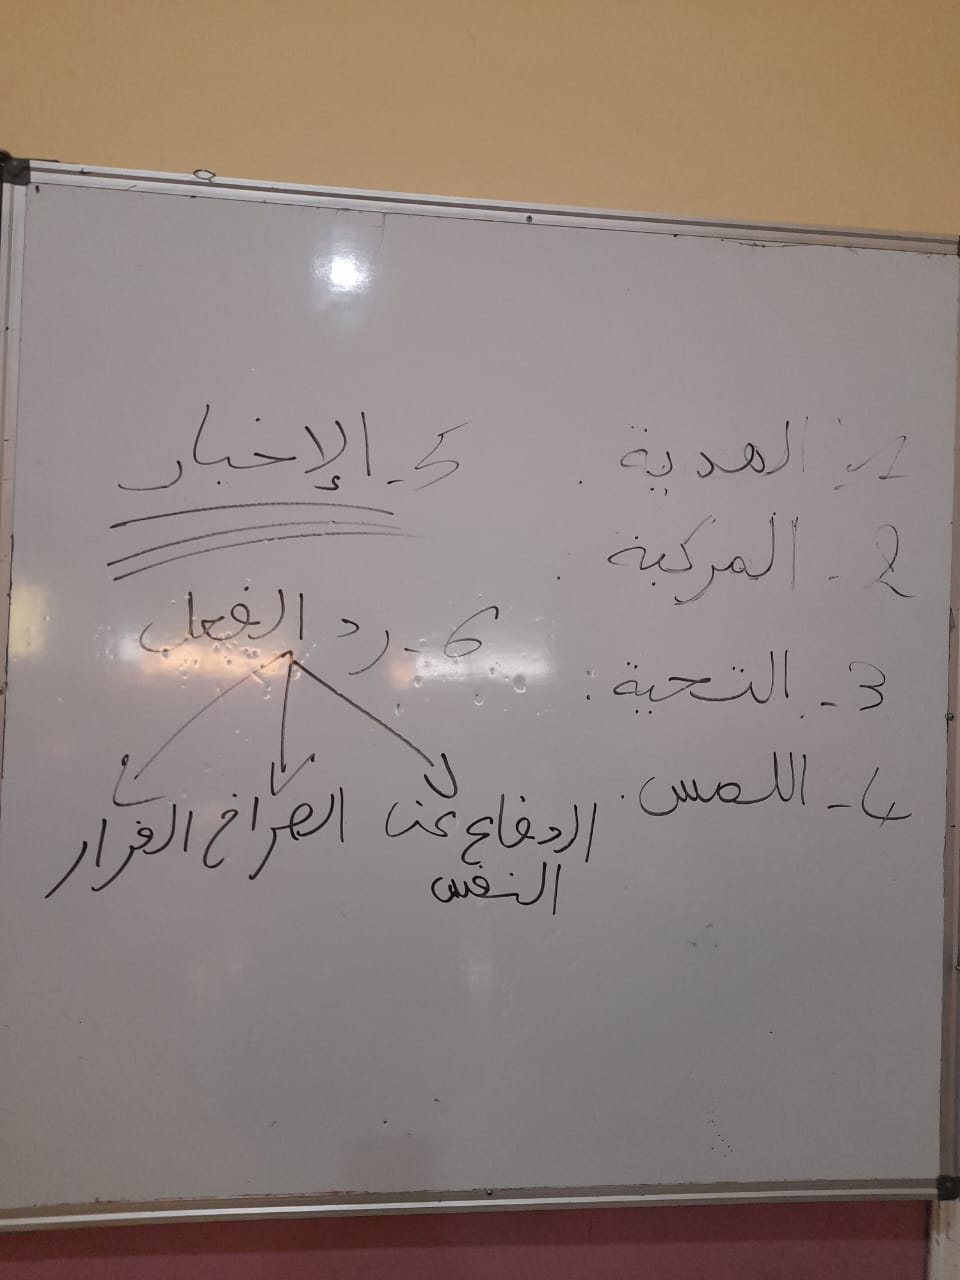 1- الهدية.
2- المركبة.
3- التحية.
4- اللمس.
5- الإخبار
6- رد الفعل
الدفاع عن النفس
الصراخ
الفرار